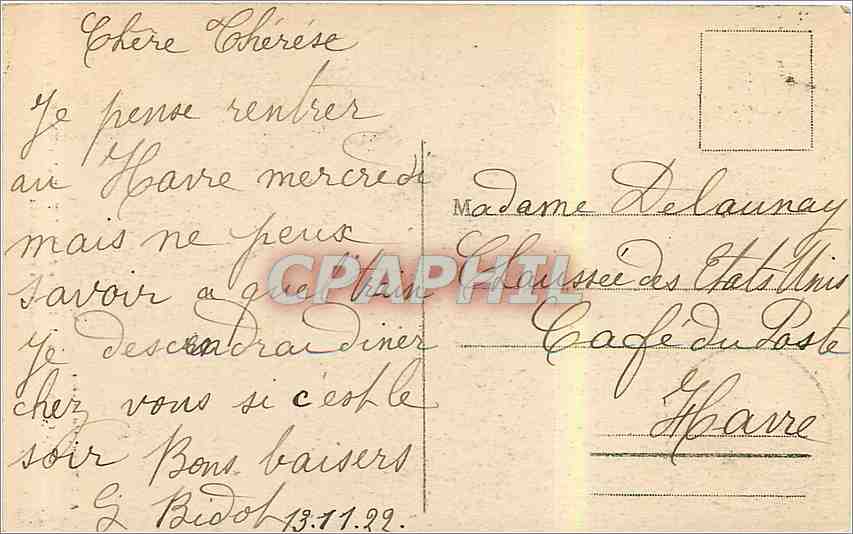 Chère Thérèse
Je pense rentrer
au Havre mercredi
mais ne peux
savoir a quel train
Je descendrai diner
chez vous si c'est le
soir Bons baisers
G Bidot 13.11.22.
Madame Delaunay
Chaussée des Etats Unis
Café du Poste
Havre
CPAPHIL